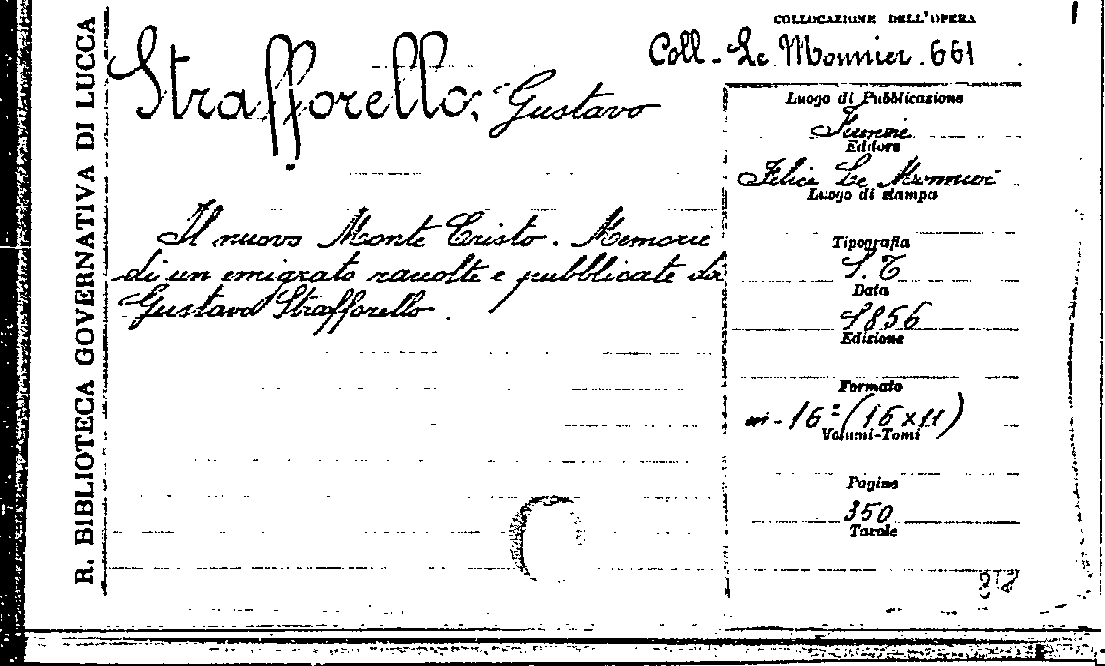 R. BIBLIOTECA GOVERNATIVA DI LUCCA
COLLOCAZIONE DELL'OPERA
Coll. Le Monnier. 661
Strafforello, Gustavo
Il nuovo Monte Cristo. Memorie
di un emigrato raccolte e pubblicate da
Gustavo Strafforello.
Luogo di Pubblicazione
Firenze
Editore
Felice Le Monnier
Luogo di stampa
Tipografia
S.T
Data
1856
Edizione
Formato
in-16º (16x11)
Volumi-Tomi
Pagine
350
Tavole